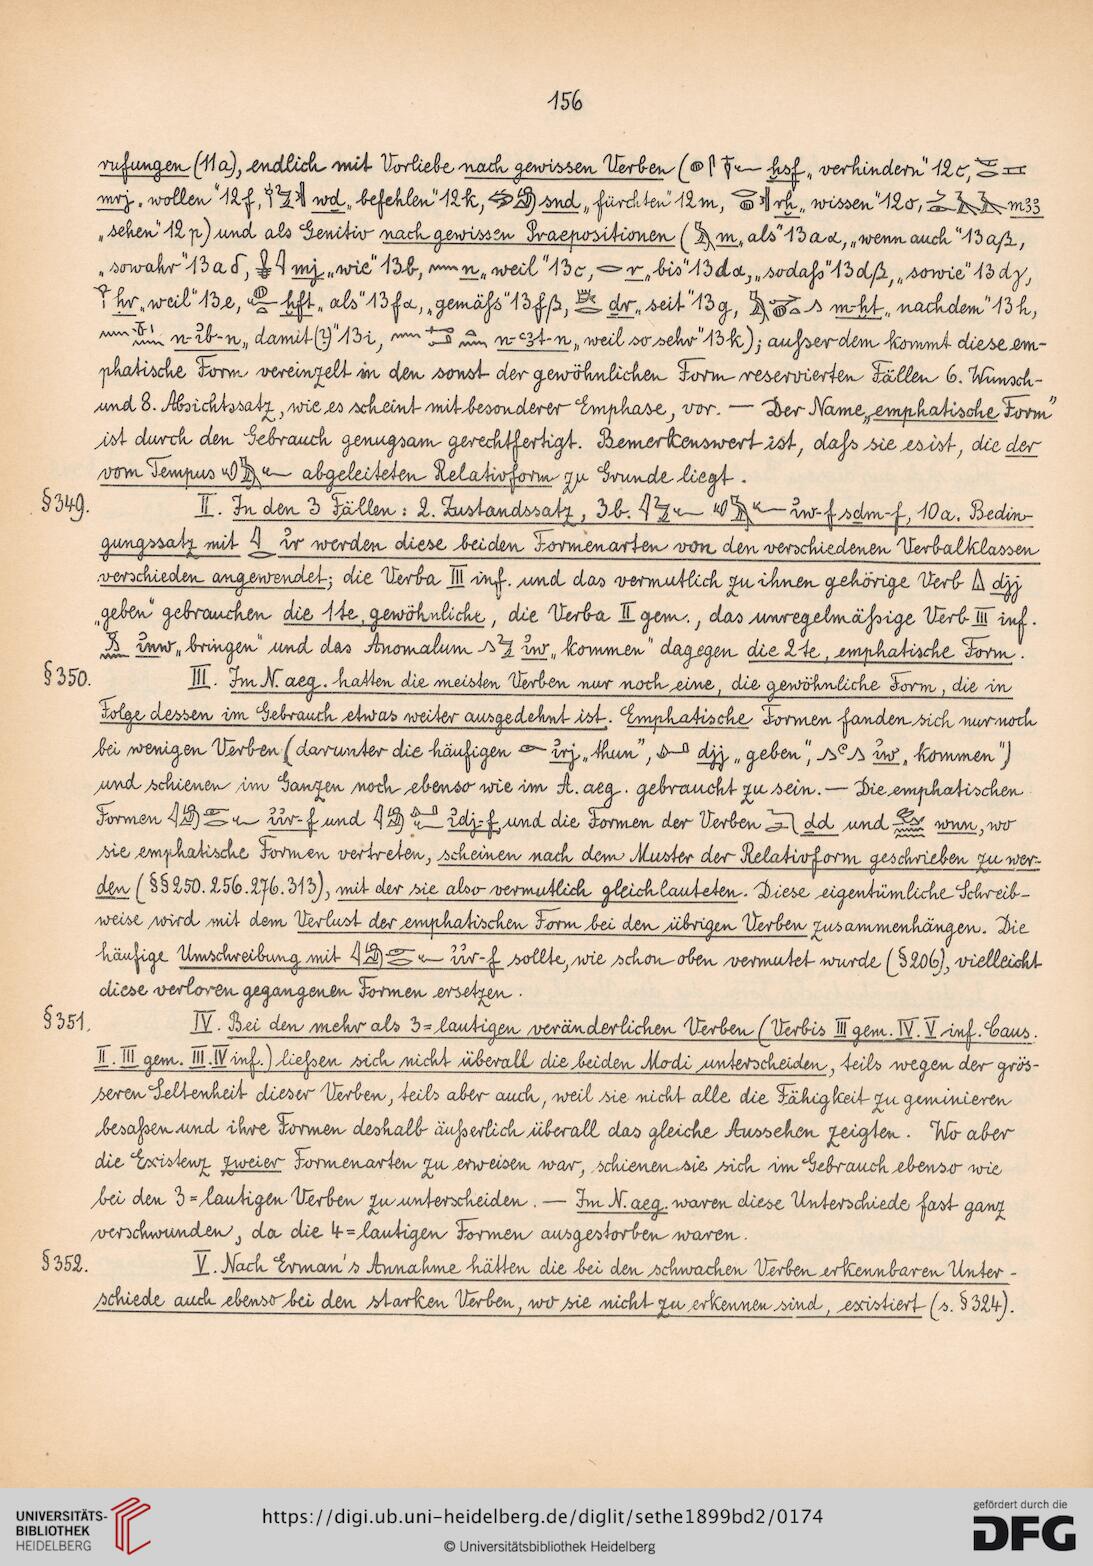 156
rufungen (11a), endlich mit Vorliebe nach gewissen Verben ( ḫsf „verhindern" 12c,
mrj „wollen" 12f, wd „befehlen" 12k, snd „fürchten" 12m, rḫ „wissen" 12o, m33
„sehen" 12p) und als Genitiv nach gewissen Praepositionen ( m „als" 13aα, „wenn auch" 13aβ,
„sowahr" 13aδ, mj „wie" 13b, n „weil" 13c, r „bis" 13dα, „sodaſs" 13dβ, „sowie" 13dγ,
ḥr „weil" 13e, ḫft „als" 13fα, „gemäſs" 13fβ, dr „seit" 13g, m-ḫt „nachdem" 13h,
n-ỉb-n „damit(?)" 13i, n-ꜥ3t-n „weil so sehr" 13k); auſserdem kommt diese em-
phatische Form vereinzelt in den sonst der gewöhnlichen Form reservierten Fällen 6. Wunsch-
und 8. Absichtssatz, wie es scheint mit besonderer Emphase, vor. — Der Name „emphatische Form"
ist durch den Gebrauch genugsam gerechtfertigt. Bemerkenswert ist, daſs sie es ist, die der
vom Tempus abgeleiteten Relativform zu Grunde liegt.
§349. II. In den 3 Fällen: 2. Zustandssatz, 3b. ỉw-f sdm-f, 10a. Bedin-
gungssatz mit ỉr werden diese beiden Formenarten von den verschiedenen Verbalklassen
verschieden angewendet; die Verba III inf. und das vermutlich zu ihnen gehörige Verb djj
„geben" gebrauchen die 1te, gewöhnliche, die Verba II gem., das unregelmäſsige Verb III inf.
ỉnw „bringen" und das Anomalum ỉw „kommen" dagegen die 2te, emphatische Form.
§350. III. Im N. aeg. hatten die meisten Verben nur noch eine, die gewöhnliche Form, die in
Folge dessen im Gebrauch etwas weiter ausgedehnt ist. Emphatische Formen fanden sich nur noch
bei wenigen Verben (darunter die häufigen ỉrj „thun", djj „geben", ỉw „kommen")
und schienen im Ganzen noch ebenso wie im A. aeg. gebraucht zu sein. — Die emphatischen
Formen ỉỉr-f und ỉdj-f, und die Formen der Verben dd und wnn, wo
sie emphatische Formen vertreten, scheinen nach dem Muster der Relativform geschrieben zu wer-
den (§§ 250. 256. 276. 313), mit der sie also vermutlich gleich lauteten. Diese eigentümliche Schreib-
weise wird mit dem Verlust der emphatischen Form bei den übrigen Verben zusammenhängen. Die
häufige Umschreibung mit ỉỉr-f sollte, wie schon oben vermutet wurde (§206), vielleicht
diese verloren gegangenen Formen ersetzen.
§351. IV. Bei den mehr als 3=lautigen veränderlichen Verben (Verbis III gem. IV. V inf. Caus.
II. III gem. III. IV inf.) lieſsen sich nicht überall die beiden Modi unterscheiden, teils wegen der grös-
seren Seltenheit dieser Verben, teils aber auch, weil sie nicht alle die Fähigkeit zu geminieren
besaſsen und ihre Formen deshalb äuſserlich überall das gleiche Aussehen zeigten. Wo aber
die Existenz zweier Formenarten zu erweisen war, schienen sie sich im Gebrauch ebenso wie
bei den 3=lautigen Verben zu unterscheiden. — Im N. aeg. waren diese Unterschiede fast ganz
verschwunden, da die 4=lautigen Formen ausgestorben waren.
§352. V. Nach Erman's Annahme hätten die bei den schwachen Verben erkennbaren Unter-
schiede auch ebenso bei den starken Verben, wo sie nicht zu erkennen sind, existiert (s. §324).
UNIVERSITÄTS-
BIBLIOTHEK
HEIDELBERG
https://digi.ub.uni-heidelberg.de/diglit/sethe1899bd2/0174
© Universitätsbibliothek Heidelberg
gefördert durch die
DFG